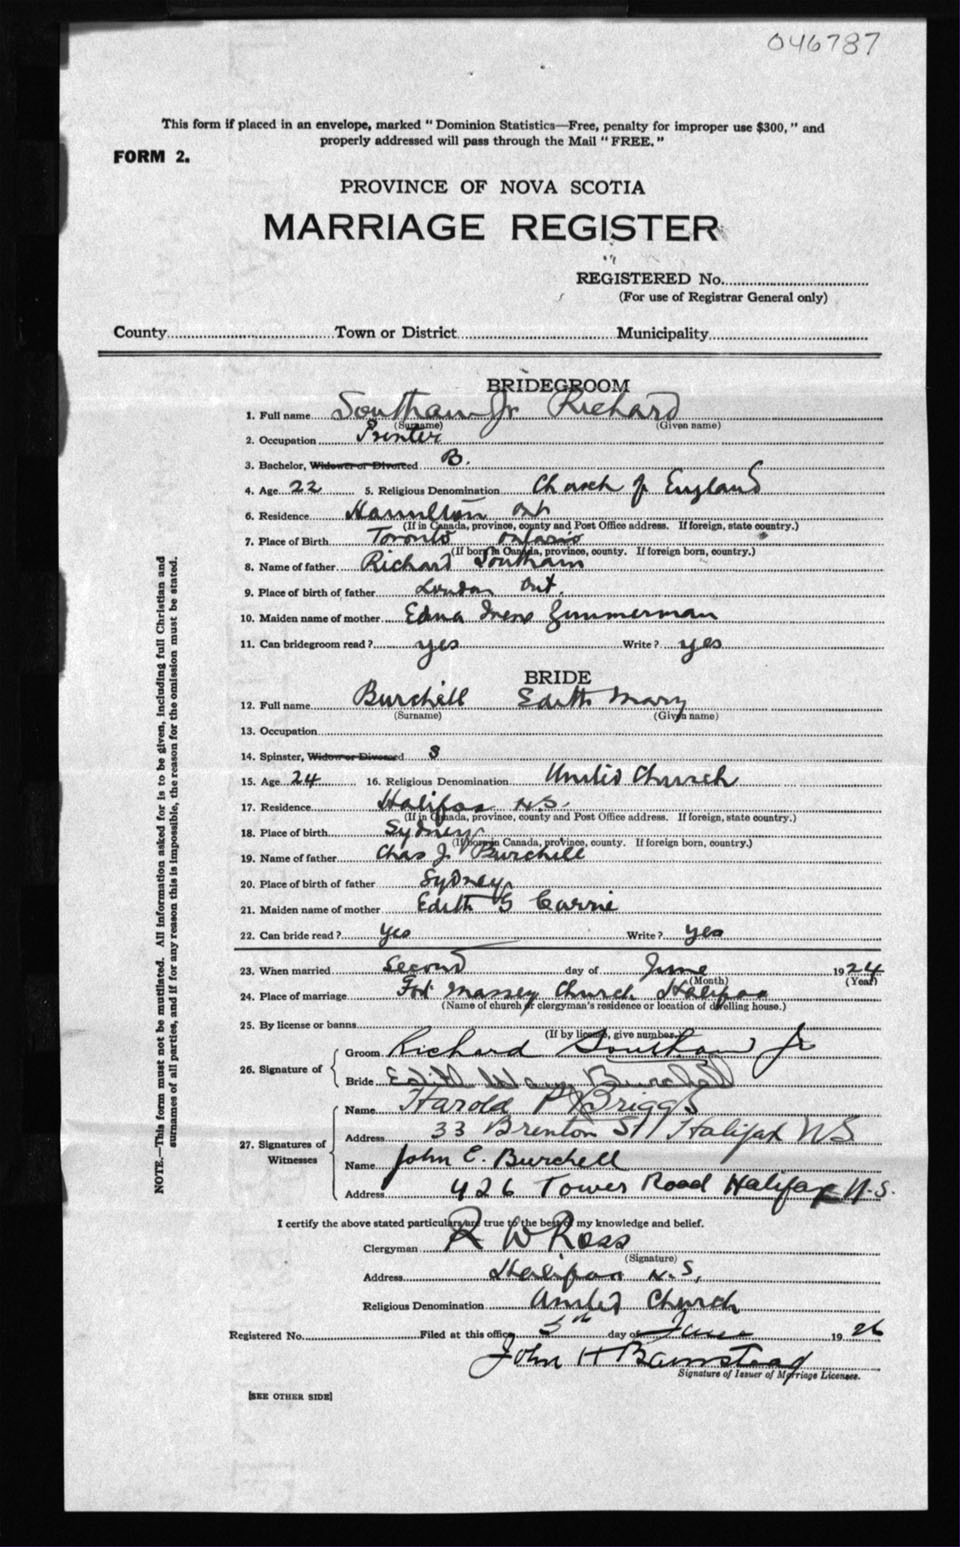 046787
This form if placed in an envelope, marked " Dominion Statistics—Free, penalty for improper use $300, " and
properly addressed will pass through the Mail " FREE. "
FORM 2.
PROVINCE OF NOVA SCOTIA
MARRIAGE REGISTER
REGISTERED No.
(For use of Registrar General only)
County Town or District Municipality
BRIDEGROOM
1. Full name Southam Jr Richard
(Surname) (Given name)
2. Occupation Printer
3. Bachelor, Widower or Divorced B.
4. Age 22 5. Religious Denomination Church of England
6. Residence Hamilton Ont
(If in Canada, province, county and Post Office address. If foreign, state country.)
7. Place of Birth Toronto Ontario
(If born in Canada, province, county. If foreign born, country.)
8. Name of father Richard Southam
9. Place of birth of father London Ont.
10. Maiden name of mother Edna Irene Zimmerman
11. Can bridegroom read ? yes Write ? yes
BRIDE
12. Full name Burchill Edith Mary
(Surname) (Given name)
13. Occupation
14. Spinster, Widow or Divorced S
15. Age 24 16. Religious Denomination United Church
17. Residence Halifax N.S.
(If in Canada, province, county and Post Office address. If foreign, state country.)
18. Place of birth Sydney
(If born in Canada, province, county. If foreign born, country.)
19. Name of father Chas J. Burchill
20. Place of birth of father Sydney
21. Maiden name of mother Edith G Currie
22. Can bride read ? yes Write ? yes
23. When married Second day of June 1924
(Month) (Year)
24. Place of marriage Fort Massey Church Halifax
(Name of church or clergyman's residence or location of dwelling house.)
25. By license or banns
(If by license, give number.)
26. Signature of
Groom Richard Southam Jr
Bride Edith Mary Burchell
27. Signatures of Witnesses
Name Harold P Briggs
Address 33 Brenton St Halifax NS
Name John E. Burchell
Address 426 Tower Road Halifax N.S.
I certify the above stated particulars are true to the best of my knowledge and belief.
Clergyman R W Ross
(Signature)
Address Halifax N.S,
Religious Denomination United Church
Registered No. Filed at this office 5th day of June 19 26
John H Barnstead
Signature of Issuer of Marriage Licenses.
[SEE OTHER SIDE]
NOTE.—This form must not be mutilated. All information asked for is to be given, including full Christian and
surnames of all parties, and if for any reason this is impossible, the reason for the omission must be stated.